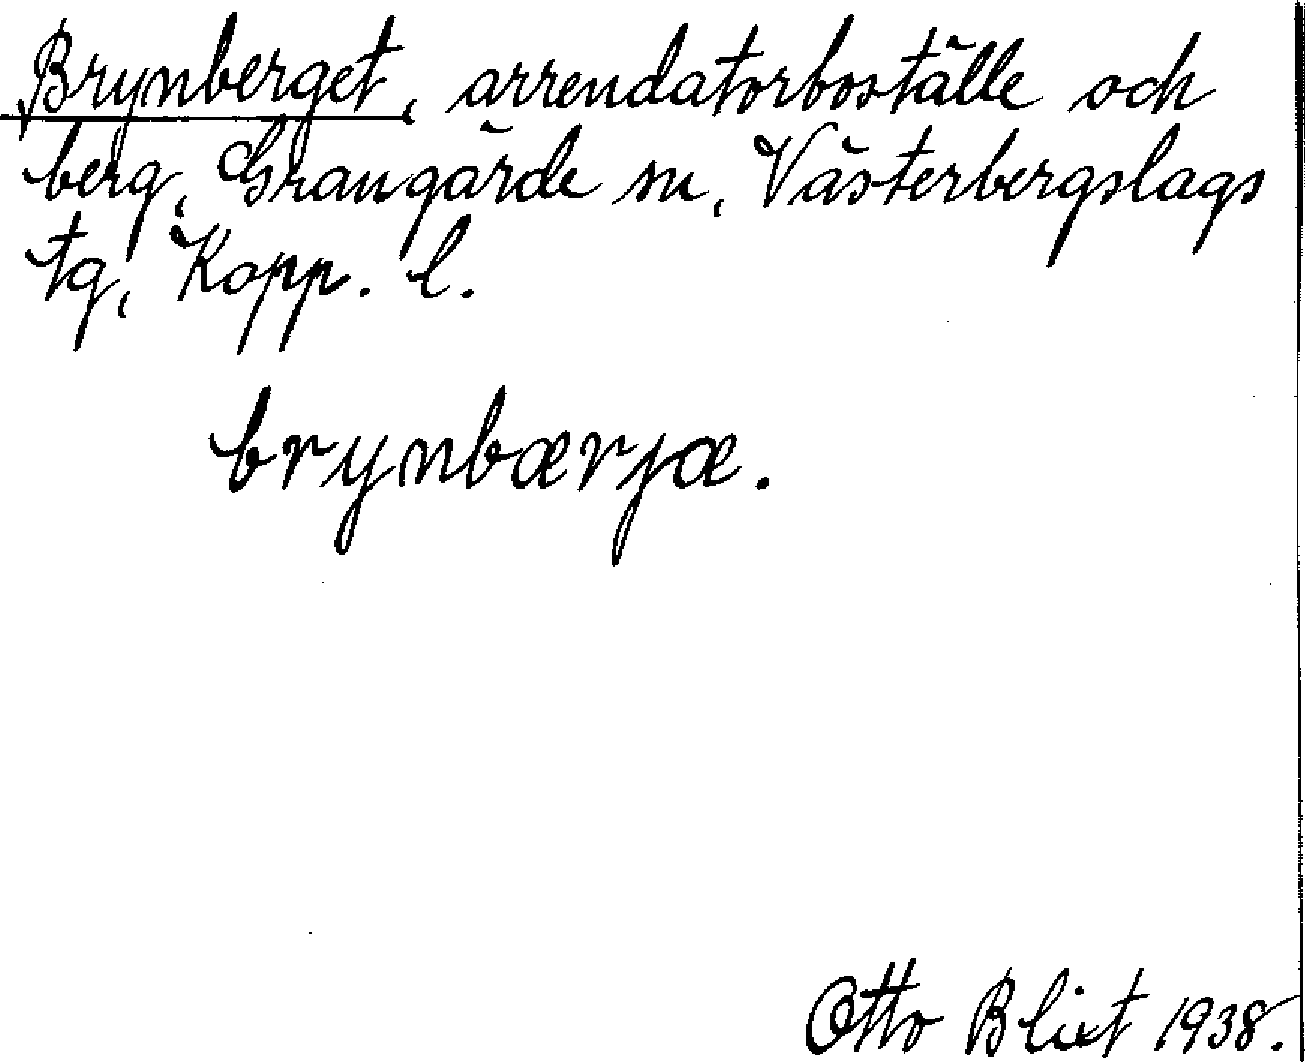 Brynberget, arrendatorboställe och
berg, Grangärde sn, Västerbergslags
tg, Kopp. l.
brynbærjæ.
Otto Blixt 1938.